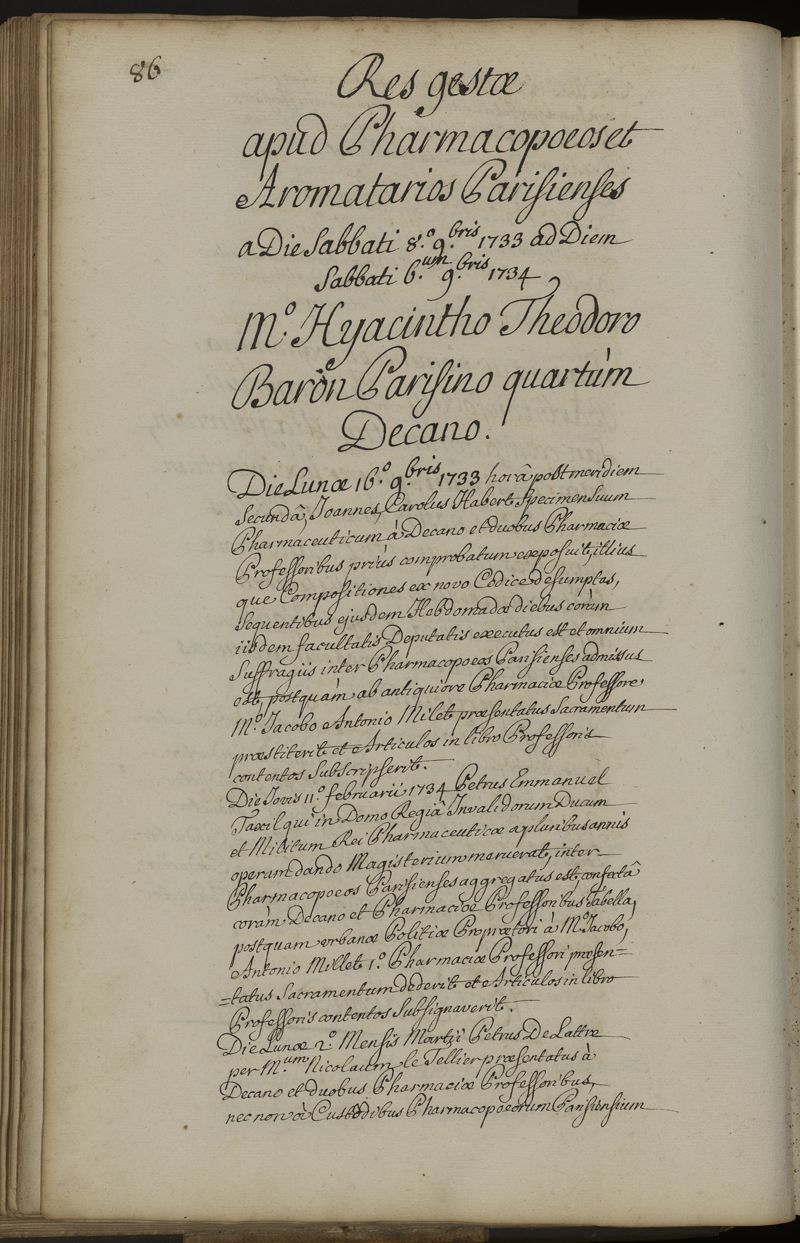 86
Res gestæ
apud Pharmacopoeos et
Aromatarios Parisienses
a Die Sabbati 8.º 9.bris 1733 ad Diem
Sabbati 6.um 9.bris 1734
M.º Hyacintho Theodoro
Baron Parisino quartùm
Decano.
Die Lunæ 16.º 9.bris 1733 horâ post meridiem
Secundâ, Joannes, Carolus Habert Specimen Suum
Pharmaceuticum à Decano et duobus Pharmaciæ
Professoribus priùs comprobatum exposuit, illius
que Compositiones ex novo Codice desumptas,
Sequentibus ejusdem Hebdomadæ diebus coràm
iisdem facultatis Deputatis executus est et omnium
Suffragiis inter Pharmacopoeos Parisienses admissus
est, postquàm ab antiquiore Pharmaciæ Professore
M.º Jacobo Antonio Milet præsentatus Sacramentum
præstiterit et Articulos in libro Professoris
contentos Subscripserit.
Die Jovis 11.º februarii 1734 Petrus Emmanuel
Taxil qui in Domo Regiâ Invalidorum Ducum
et Militum Rei Pharmaceuticæ a pluribus annis
operam dando Magisterium meruerat, inter
Pharmacopoeos Parisienses aggregatus est, confectâ
coràm Decano et Pharmaciæ Professoribus tabella,
postquam urbanæ Politiæ Propræetori à M.º Jacobo,
Antonio Millet 1.º Pharmaciæ Professori præsen=
=tatus Sacramentum dederit et Articulos in libro
Professoris contentos Subsignaverit.
Die Lunæ 2.º Mensis Martii Petrus De Lattre
per M.um Nicolaum le Tellier præsentatus à
Decano et duobus Pharmaciæ Professoribus,
nec non à Custodibus Pharmacopoeorum Parisiensium